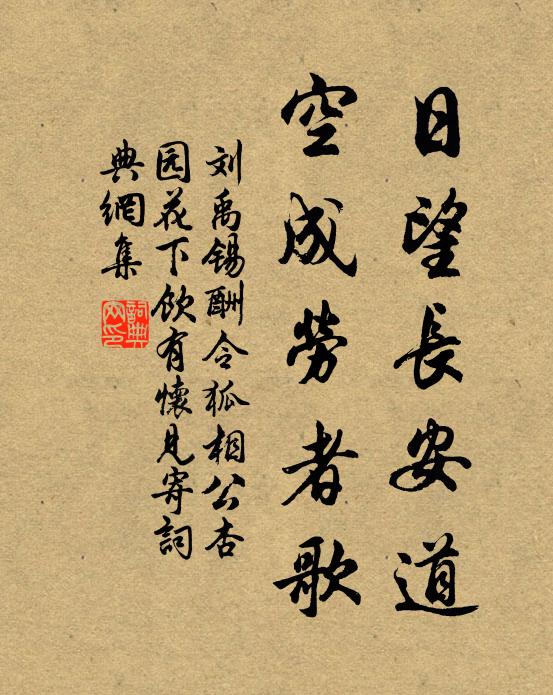 日望長安道
空成勞者歌
刘禹锡酬令狐相公杏
园花下飲有懷見寄詞
典網集
詞典网印